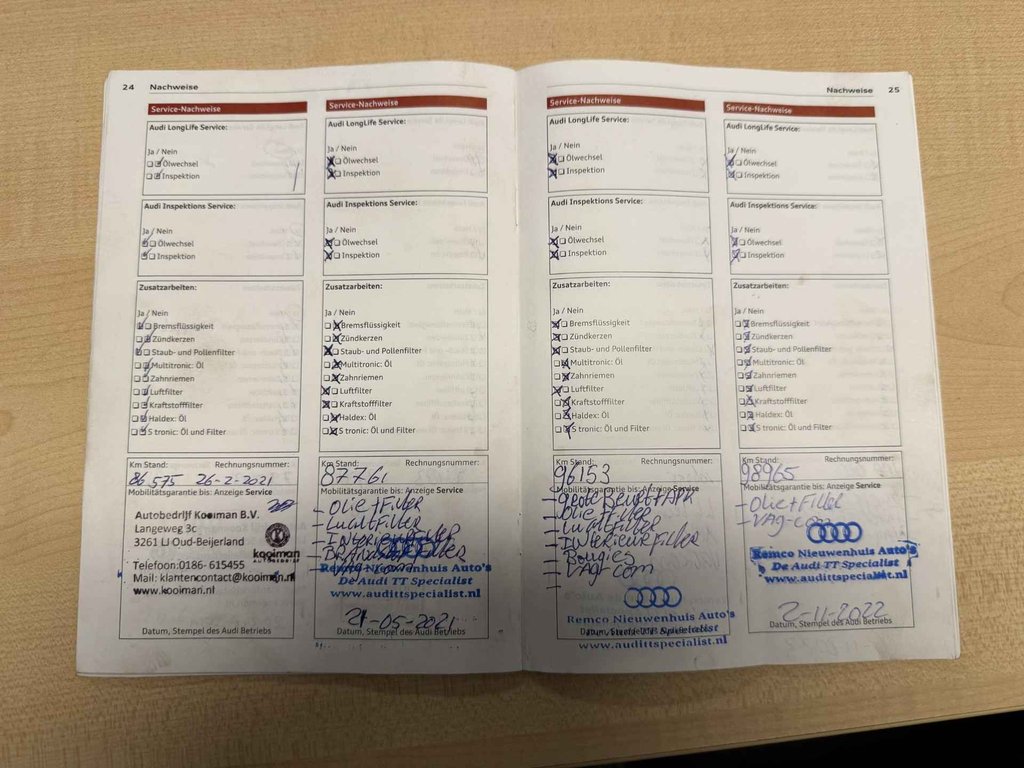 24 Nachweise
Service-Nachweise
Audi LongLife Service:
Ja / Nein
Ölwechsel
Inspektion
Audi Inspektions Service:
Ja / Nein
Ölwechsel
Inspektion
Zusatzarbeiten:
Ja / Nein
Bremsflüssigkeit
Zündkerzen
Staub- und Pollenfilter
Multitronic: Öl
Zahnriemen
Luftfilter
Kraftstofffilter
Haldex: Öl
S tronic: Öl und Filter
Km Stand: Rechnungsnummer:
86 575 26-2-2021
Mobilitätsgarantie bis: Anzeige Service
Autobedrijf Kooiman B.V.
Langeweg 3c
3261 LJ Oud-Beijerland
kooiman
AUTOBEDRIJF
Telefoon:0186- 615455
Mail: klantencontact@kooiman.nl
www.kooiman.nl
Datum, Stempel des Audi Betriebs
Service-Nachweise
Audi LongLife Service:
Ja / Nein
Ölwechsel
Inspektion
Audi Inspektions Service:
Ja / Nein
Ölwechsel
Inspektion
Zusatzarbeiten:
Ja / Nein
Bremsflüssigkeit
Zündkerzen
Staub- und Pollenfilter
Multitronic: Öl
Zahnriemen
Luftfilter
Kraftstofffilter
Haldex: Öl
S tronic: Öl und Filter
Km Stand: Rechnungsnummer:
87761
Mobilitätsgarantie bis: Anzeige Service
- Olie+Filter
- Luchtfilter
- Interieurfilter
Remco Nieuwenhuis Auto's
De Audi TT Specialist
www.audittspecialist.nl
21-05-2021
Datum, Stempel des Audi Betriebs
Nachweise 25
Service-Nachweise
Audi LongLife Service:
Ja / Nein
Ölwechsel
Inspektion
Audi Inspektions Service:
Ja / Nein
Ölwechsel
Inspektion
Zusatzarbeiten:
Ja / Nein
Bremsflüssigkeit
Zündkerzen
Staub- und Pollenfilter
Multitronic: Öl
Zahnriemen
Luftfilter
Kraftstofffilter
Haldex: Öl
S tronic: Öl und Filter
Km Stand: Rechnungsnummer:
96153
Mobilitätsgarantie bis: Anzeige Service
- Grote Beurt+APK
- Olie+Filter
- Luchtfilter
- Interieurfilter
- Bougies
- VAG-com
Remco Nieuwenhuis Auto's
www.audittspecialist.nl
Service-Nachweise
Audi LongLife Service:
Ja / Nein
Ölwechsel
Inspektion
Audi Inspektions Service:
Ja / Nein
Ölwechsel
Inspektion
Zusatzarbeiten:
Ja / Nein
Bremsflüssigkeit
Zündkerzen
Staub- und Pollenfilter
Multitronic: Öl
Zahnriemen
Luftfilter
Kraftstofffilter
Haldex: Öl
S tronic: Öl und Filter
Km Stand: Rechnungsnummer:
98965
Mobilitätsgarantie bis: Anzeige Service
- Olie+Filter
- VAG-com
Remco Nieuwenhuis Auto's
De Audi TT Specialist
www.audittspecialist.nl
2-11-2022
Datum, Stempel des Audi Betriebs